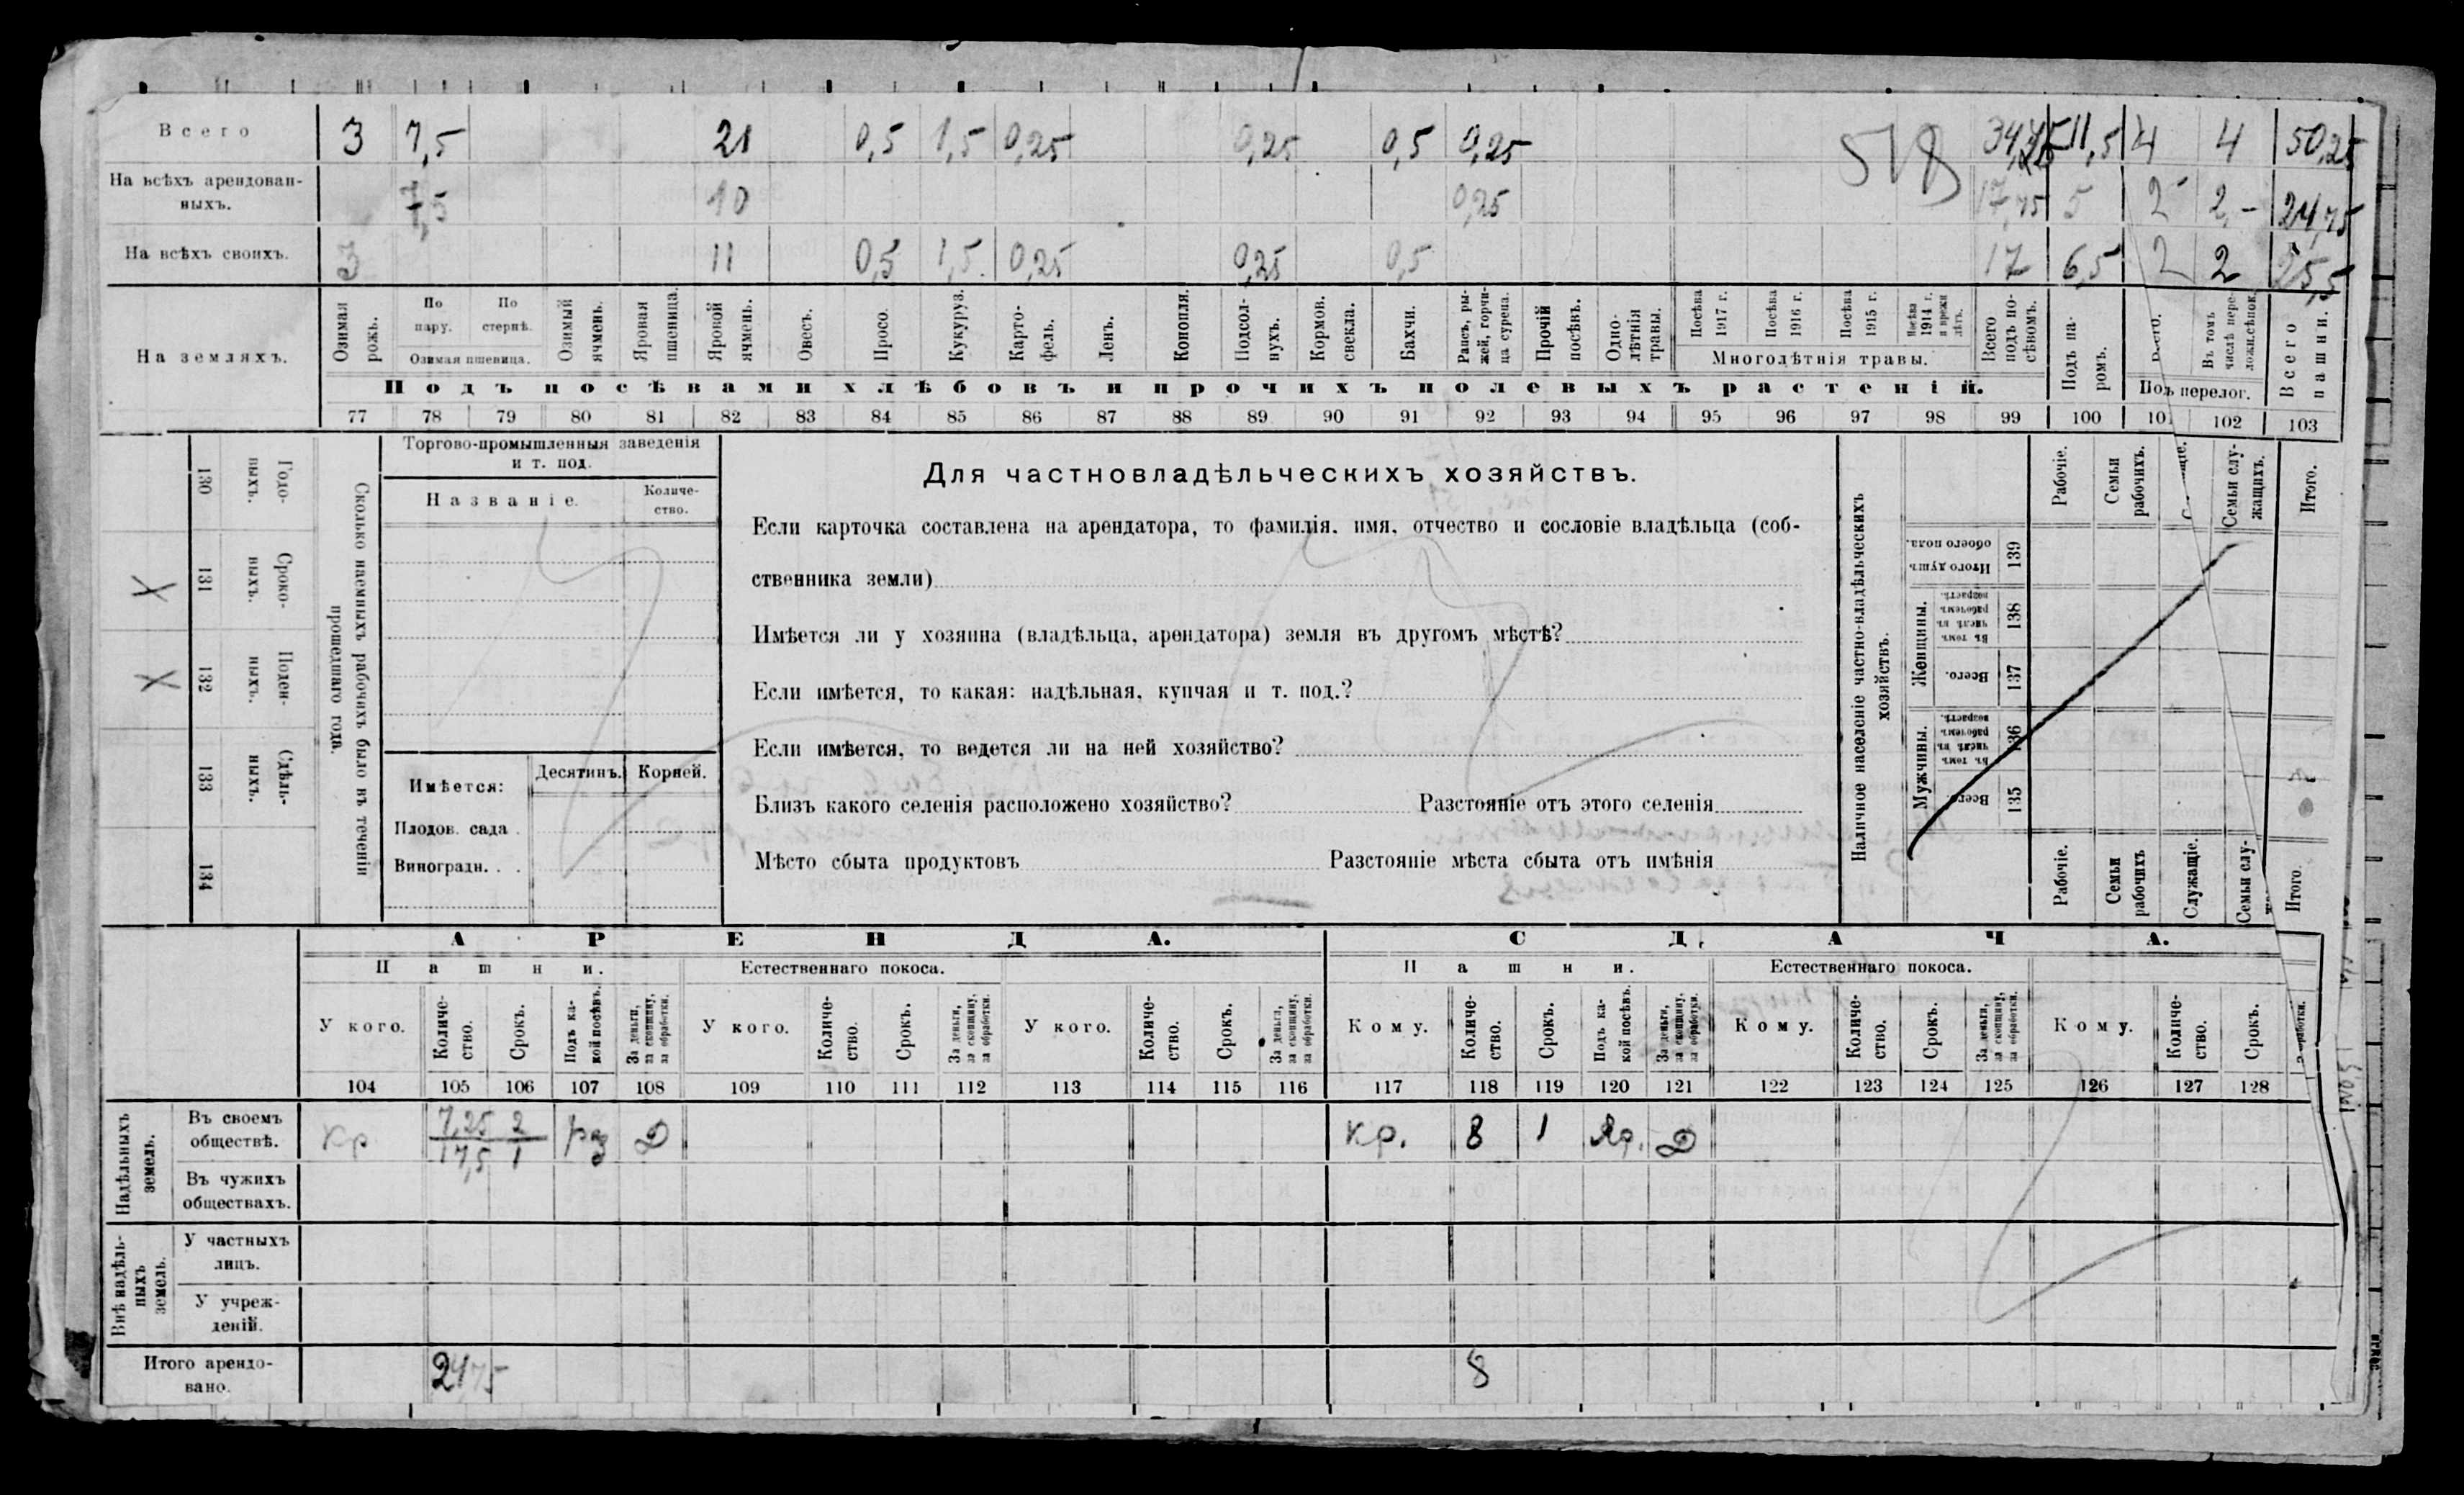 Всего 3 7,5 21 0,5 1,5 0,25 0,25 0,5 0,25 11,5 4 4 50,25
На всѣхъ арендован-
ныхъ. 7,5 10 0,25 17,75 5 2 2 24,75
На всѣхъ своихъ. 3 11 0,5 1,5 0,25 0,25 0,5 17 6,5 2 2 25,5
На земляхъ.
Озимая рожь.
По пару.
По стернѣ.
Озимая пшеница.
Озимый ячмень.
Яровая пшеница.
Яровой ячмень.
Овесъ.
Просо.
Кукуруз.
Карто-
фель.
Ленъ.
Конопля.
Подсол-
нухъ.
Кормов.
свекла.
Бахчи.
Рапсъ, ры-
жей, горчи-
ца сурепа.
Прочій посѣвъ.
Одно-
лѣтнія травы.
Посѣва 1917 г.
Посѣва 1916 г.
Посѣва 1915 г.
Посѣва 1914 г. и прежн лѣтъ.
Многолѣтнія травы.
Всего подъ по-
сѣвомъ.
Подъ посѣвами хлѣбовъ и прочихъ полевыхъ растеній.
Подъ па-
ромъ.
Всего.
Въ томъ числѣ пере-
ложн.сѣнок.
Подъ перелог.
Всего пашни.
77 78 79 80 81 82 83 84 85 86 87 88 89 90 91 92 93 94 95 96 97 98 99 100 10 102 103
Годо-
ныхъ.
130
Сроко-
ныхъ.
131
X
Поден-
ныхъ.
132
X
Сдѣль-
ныхъ.
133
134
Сколько наемныхъ рабочихъ было въ теченіи
прошедшаго года.
Торгово-промышленныя заведенія
и т. под.
Названіе.
Количе-
ство.
Имѣется:
Десятинъ.
Корней.
Плодов. сада .
Виноградн. . .
Для частновладѣльческихъ хозяйствъ.
Если карточка составлена на арендатора, то фамилія, имя, отчество и сословіе владѣльца (соб-
ственника земли)
Имѣется ли у хозяина (владѣльца, арендатора) земля въ другомъ мѣстѣ?
Если имѣется, то какая: надѣльная, купчая и т. под.?
Если имѣется, то ведется ли на ней хозяйство?
Близъ какого селенія расположено хозяйство? Разстояніе отъ этого селенія
Мѣсто сбыта продуктовъ Разстояніе мѣста сбыта отъ имѣнія
Наличное населеніе частно-владѣльческихъ
хозяйствъ.
Рабочіе.
Семьи рабочихъ.
Семьи слу-
жащихъ.
Итого.
Итого душъ обоего пола.
139
Женщины.
Въ томъ числѣ въ рабочемъ возрастѣ.
138
Всего.
137
Мужчины.
Въ томъ числѣ въ рабочемъ возрастѣ.
136
Всего.
135
Рабочіе.
Семьи рабочихъ
Служащіе.
Семьи слу-
Итого.
АРЕНДА.
СДАЧА.
Пашни.
Естественнаго покоса.
Пашни.
Естественнаго покоса.
У кого.
Количе-
ство.
Срокъ.
Подъ ка-
кой посѣвъ.
За деньги,
за скопщину,
за обработки.
У кого.
Количе-
ство.
Срокъ.
За деньги,
за скопщину,
за обработки.
У кого.
Количе-
ство.
Срокъ.
За деньги,
за скопщину,
за обработки.
Кому.
Количе-
ство.
Срокъ.
Подъ ка-
кой посѣвъ.
За деньги,
за скопщину,
за обработки.
Кому.
Количе-
ство.
Срокъ.
За деньги,
за скопщину,
за обработки.
Кому.
Количе-
ство.
Срокъ.
104 105 106 107 108 109 110 111 112 113 114 115 116 117 118 119 120 121 122 123 124 125 126 127 128
Надѣльныхъ
земель.
Въ своемъ
обществѣ.
Кр 7,25 2 раз Д Кр. 8 1 Яр. Д
17,5 1
Въ чужихъ
обществахъ.
Внѣ надѣль-
ныхъ
земель.
У частныхъ
лицъ.
У учреж-
деній.
Итого арендо-
вано. 2475 8